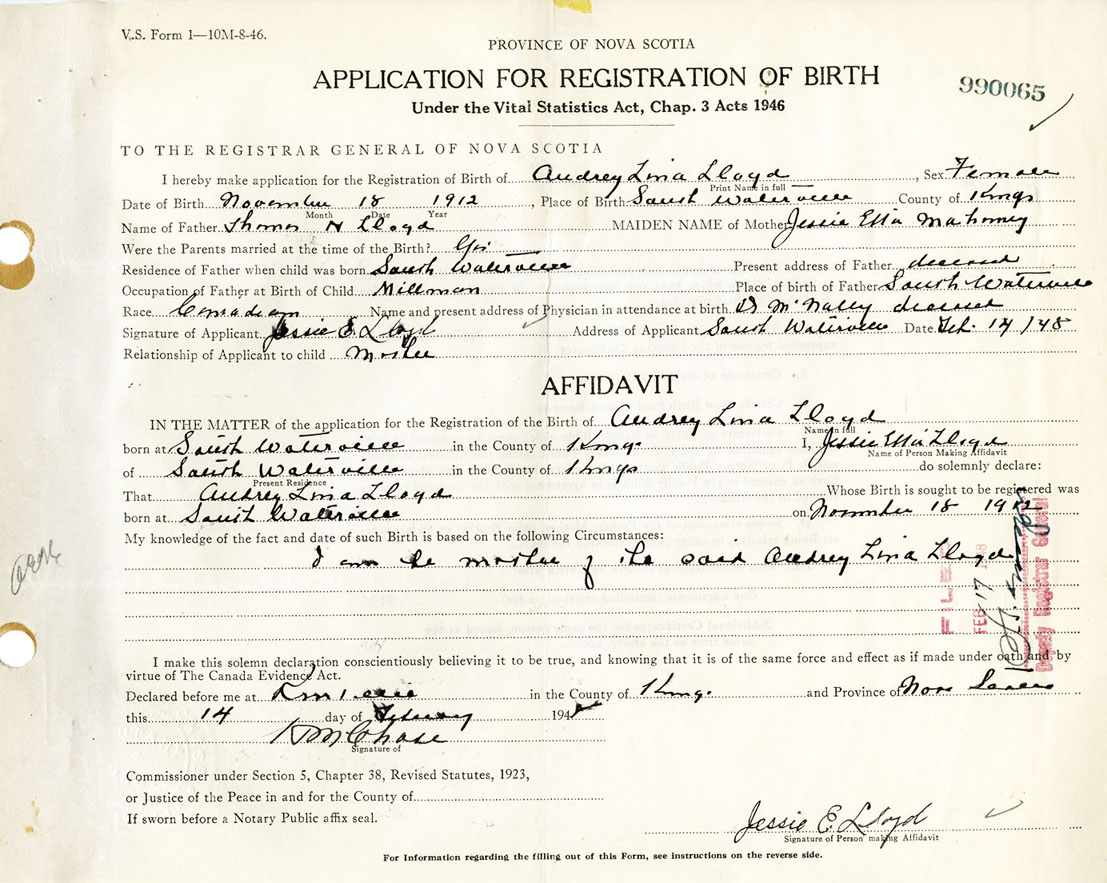 V.S. Form 1—10M-8-46.
PROVINCE OF NOVA SCOTIA
APPLICATION FOR REGISTRATION OF BIRTH
990065
Under the Vital Statistics Act, Chap. 3 Acts 1946
TO THE REGISTRAR GENERAL OF NOVA SCOTIA
I hereby make application for the Registration of Birth of Audrey Lina Lloyd, Sex Female
Print Name in full
Date of Birth November 18 1912, Place of Birth South Waterville County of Kings
Month Date Year
Name of Father Thomas H Lloyd MAIDEN NAME of Mother Jessie Etta Mahoney
Were the Parents married at the time of the Birth? Yes
Residence of Father when child was born South Waterville Present address of Father deceased
Occupation of Father at Birth of Child Millman Place of birth of Father South Waterville
Race Canadian Name and present address of Physician in attendance at birth Dr McNally deceased
Signature of Applicant Jessie E. Lloyd Address of Applicant South Waterville Date Feb. 14/48
Relationship of Applicant to child Mother
AFFIDAVIT
IN THE MATTER of the application for the Registration of the Birth of Audrey Lina Lloyd
Name in full
born at South Waterville in the County of Kings I, Jessie Etta Lloyd
Name of Person Making Affidavit
of South Waterville in the County of Kings do solemnly declare:
Present Residence
That Audrey Lina Lloyd Whose Birth is sought to be registered was
born at South Waterville on November 18 1912
My knowledge of the fact and date of such Birth is based on the following Circumstances:
I am the mother of the said Audrey Lina Lloyd
FILED
FEB 17 1948
Deputy Registrar General
I make this solemn declaration conscientiously believing it to be true, and knowing that it is of the same force and effect as if made under oath and by
virtue of The Canada Evidence Act.
Declared before me at in the County of Kings and Province of Nova Scotia
this 14 day of February 194
H M Chase
Signature of
Commissioner under Section 5, Chapter 38, Revised Statutes, 1923,
or Justice of the Peace in and for the County of
If sworn before a Notary Public affix seal.
Jessie E. Lloyd
Signature of Person making Affidavit
For Information regarding the filling out of this Form, see instructions on the reverse side.